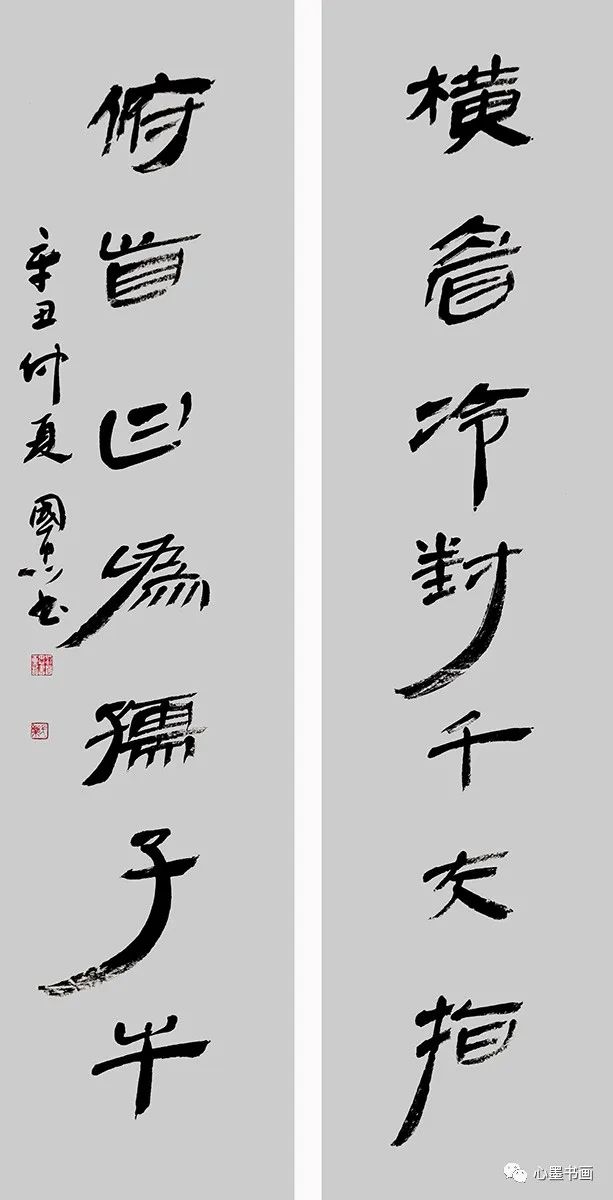 橫眉冷對千夫指
俯首甘為孺子牛
辛丑仲夏 國忠书
心墨书画